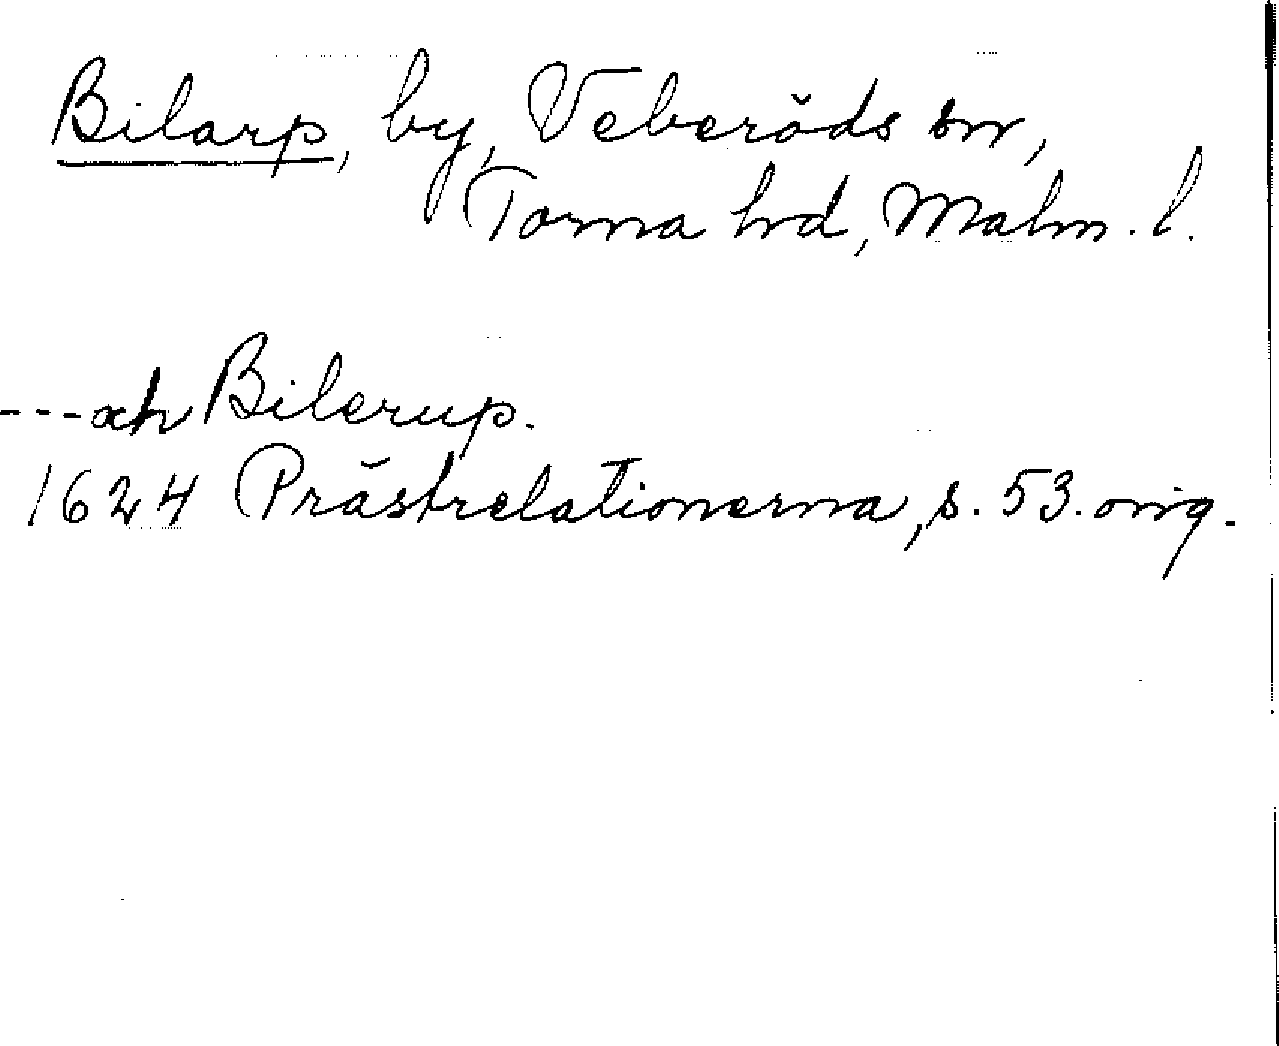 Bilarp, by, Veberöds sn,
Torna hrd, Malm. l.
---och Bilerup.
1624 Prästrelationerna, s. 53. orig.